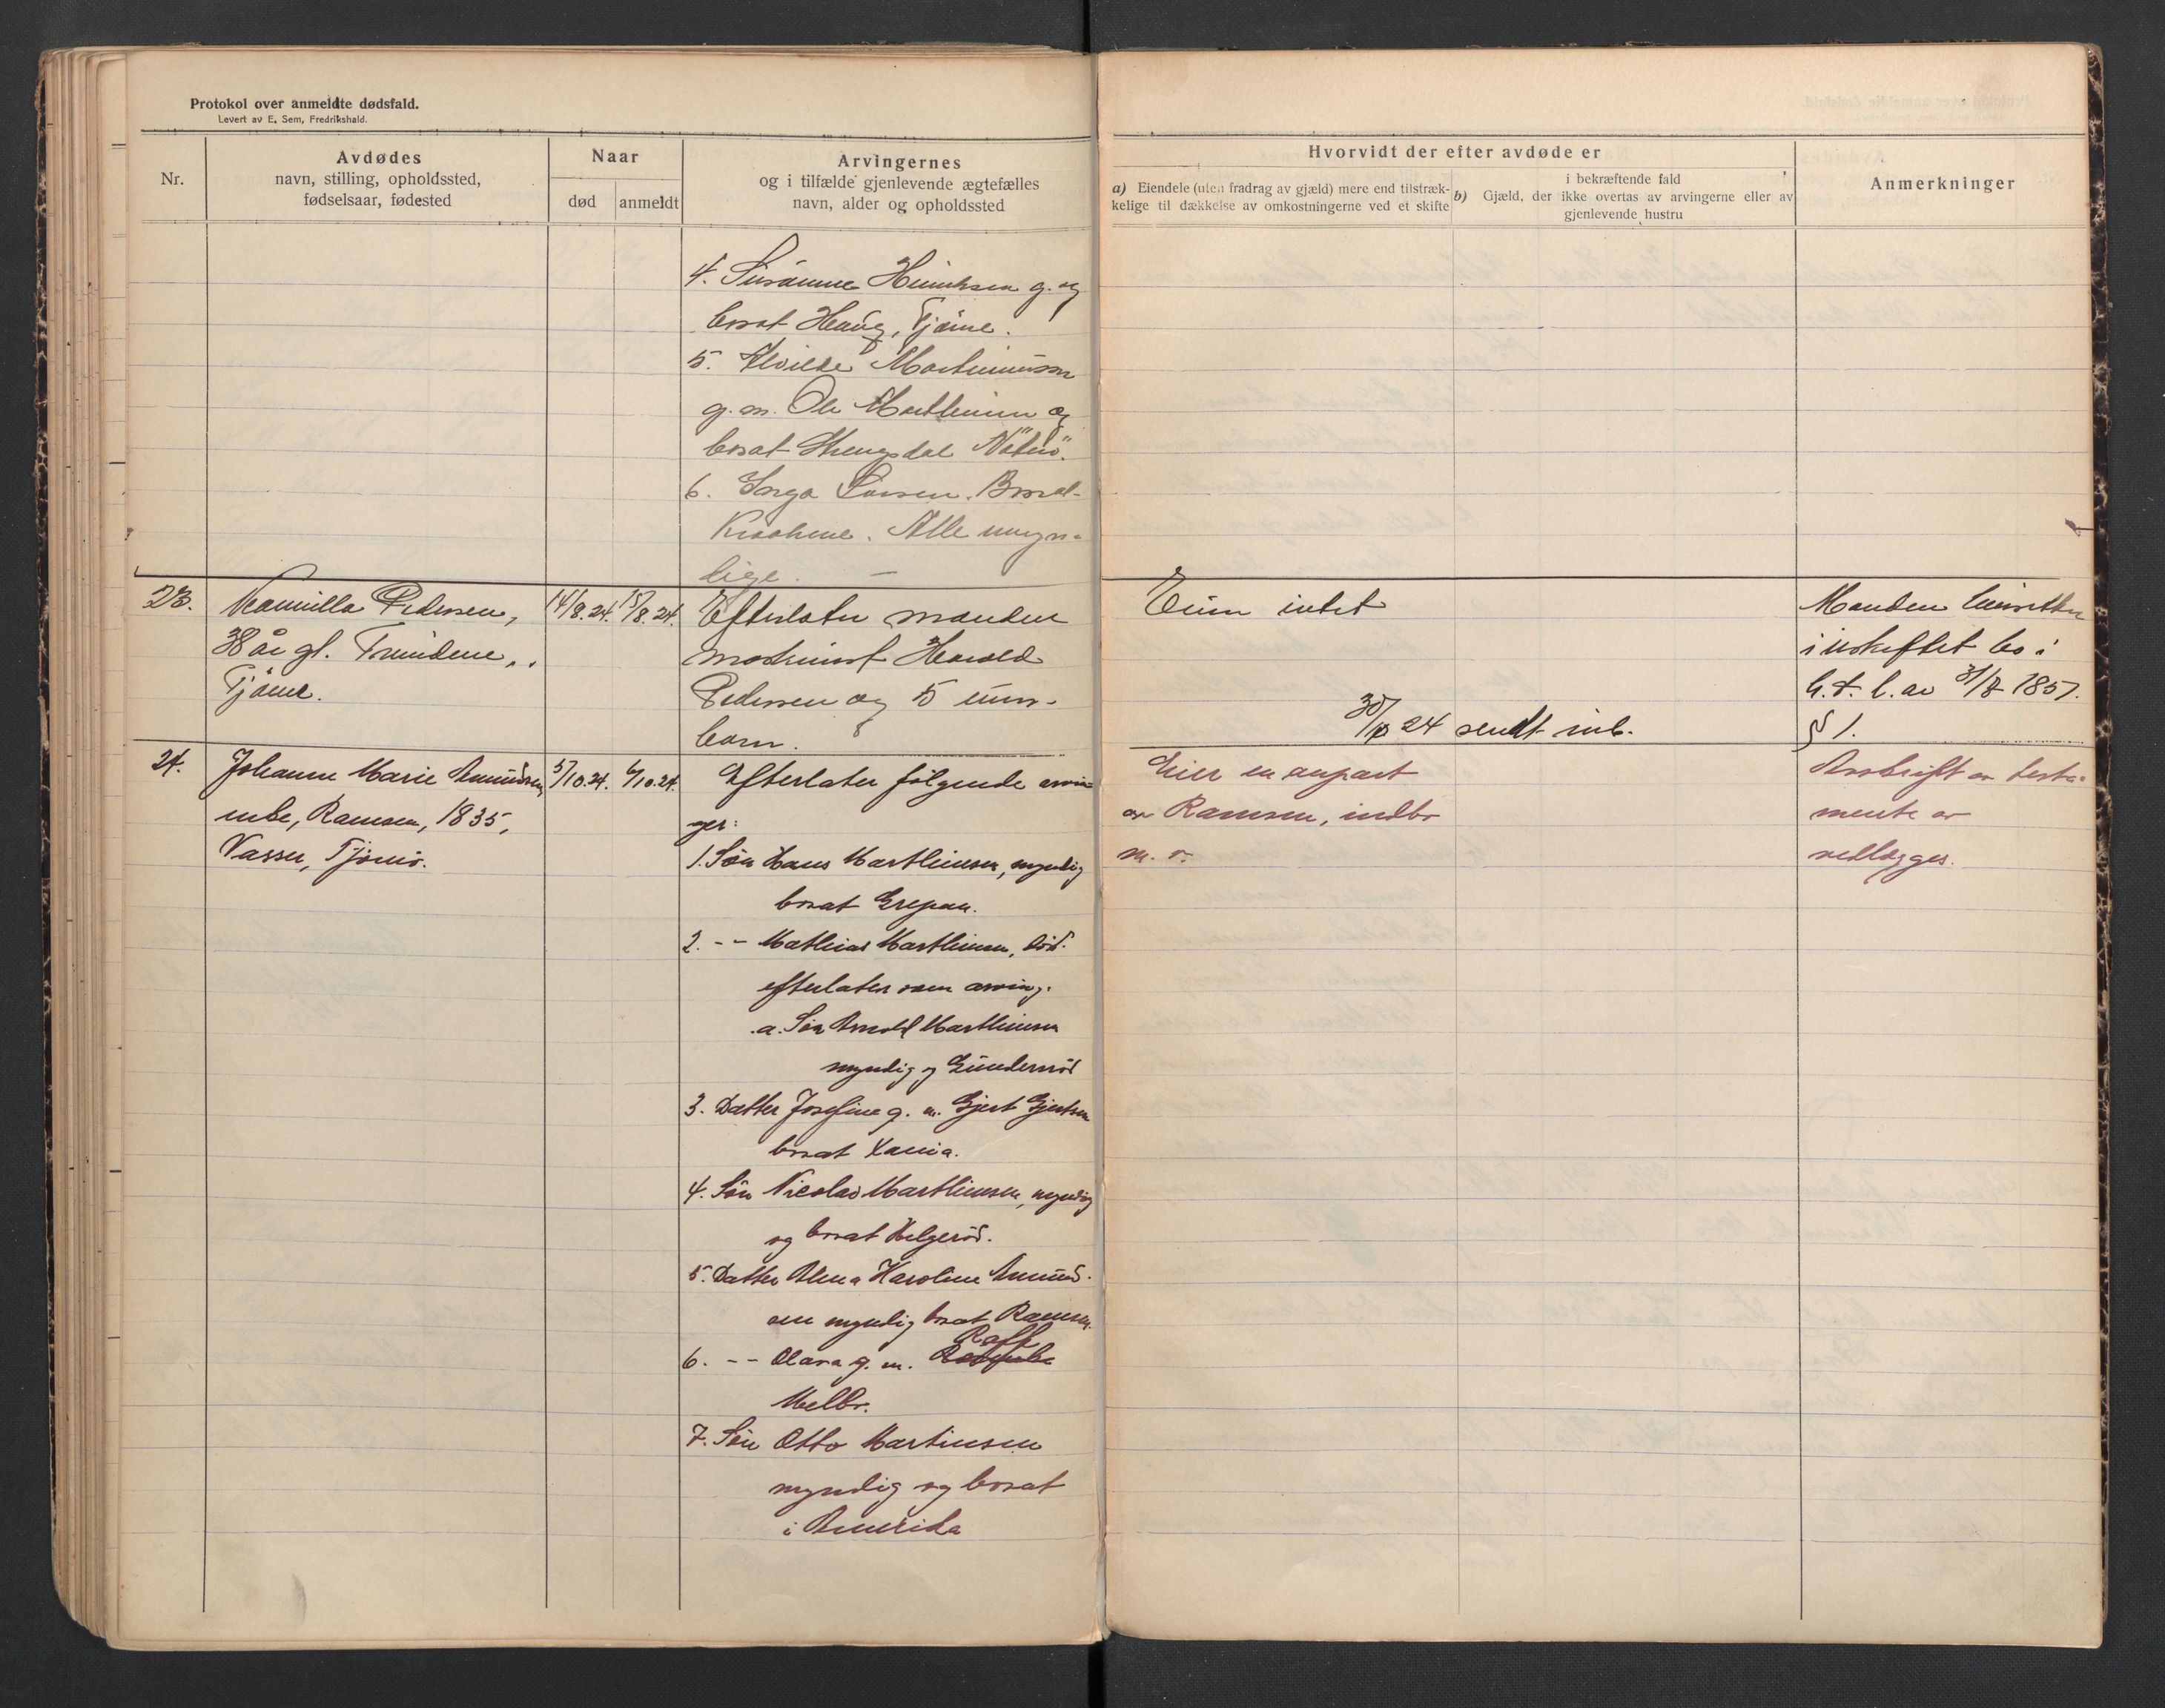 Protokol over anmeldte dødsfald.
Levert av E. Sem, Fredrikshald.
Nr.
Avdødes
navn, stilling, opholdssted,
fødselsaar, fødested
Naar
død
anmeldt
Arvingernes
og i tilfælde gjenlevende ægtefælles
navn, alder og opholdssted
Hvorvidt der efter avdøde er
a) Eiendele (uten fradrag av gjæld) mere end tilstræk-
kelige til dækkelse av omkostningerne ved et skifte
i bekræftende fald
b) Gjæld, der ikke overtas av arvingerne eller av
gjenlevende hustru
Anmerkninger
4. Susanne Hinriksen g. og
bosat Haug, Tjøme.
5. Alvilde Marthinusen
g. m. Ole Marthinsen og
bosat Nøterø.
6. Inga Larsen. Bosat
Alle myn-
dige. —
23.
Kamilla Pedersen,
38 år gl.
Tjøme.
14/8.24.
15/8.24.
Efterlater manden
maskinist Harald
Pedersen og 5 um.
barn.
Eier intet
30/10 24 sendt inb.
Manden hensitter
i uskiftet bo i
h. t. l. av 31/7 1851.
§ 1.
24.
Johanne Marie Amundsen,
enke, Ramsen, 1835,
Vasser, Tjømø.
5/10.24.
6/10.24.
Efterlater følgende arvin-
ger:
1. Søn Hans Marthinsen, myndig
bosat Grepan.
2. -- Mathias Marthinsen, død.
efterlater som arving.
a. Søn Arnold Marthinsen
myndig og Gunderød
3. Datter Josefine g. m. Gjert Gjertsen
bosat Xania.
4. Søn Nicolai Marthinsen, myndig
og bosat Helgerød.
5. Datter Alma Karoline Amund-
sen myndig bosat Ramsen.
6. -- Clara g. m. Rolf
Melbo.
7. Søn Otto Martinsen
myndig og bosat
i Amerika
Eier en anpart
av Ramsen, indbo
m. v.
Avskrift av testa-
mente av
vedlægges.